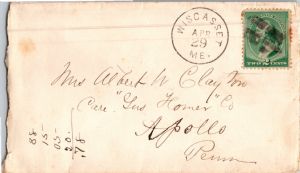 WISCASSET
APR
29
ME.
TWO CENTS
Mrs Albert W Clay
Care "Geo Homer" Co
Apollo
Penn
88
15-
05-
20.
.78